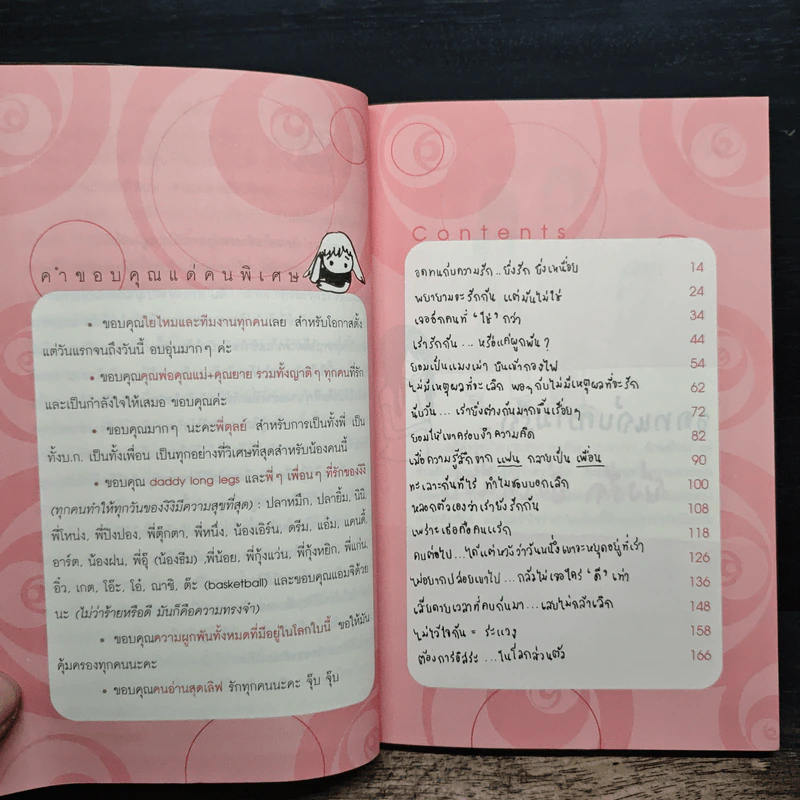 คำขอบคุณแด่คนพิเศษ
• ขอบคุณใยไหมและทีมงานทุกคนเลย สำหรับโอกาสตั้ง
แต่วันแรกจนถึงวันนี้ อบอุ่นมากๆ ค่ะ
• ขอบคุณคุณพ่อคุณแม่+คุณยาย รวมทั้งญาติๆ ทุกคนที่รัก
และเป็นกำลังใจให้เสมอ ขอบคุณค่ะ
• ขอบคุณมากๆ นะคะพี่ตุลย์ สำหรับการเป็นทั้งพี่ เป็น
ทั้งบ.ก. เป็นทั้งเพื่อน เป็นทุกอย่างที่วิเศษที่สุดสำหรับน้องคนนี้
• ขอบคุณ daddy long legs และพี่ๆ เพื่อนๆ ที่รักของงิงิ
(ทุกคนทำให้ทุกวันของงิงิมีความสุขที่สุด) : ปลาหมึก, ปลายิ้ม, นินิ,
พี่โหน่ง, พี่ปิงปอง, พี่ตุ๊กตา, พี่หนึ่ง, น้องเอิร์น, ดรีม, แอ๋ม, แคนดี้,
อาร์ต, น้องฝน, พี่อุ๊ (น้องธีม) ,พี่น้อย, พี่กุ้งแว่น, พี่กุ้งหยิก, พี่แก่น,
อิ๋ว, เกต, โอ๊ะ, โอ๋, ณาซิ, ต๊ะ (basketball) และขอบคุณแอมจิด้วย
นะ (ไม่ว่าร้ายหรือดี มันก็คือความทรงจำ)
• ขอบคุณความผูกพันทั้งหมดที่มีอยู่ในโลกใบนี้ ขอให้มัน
คุ้มครองทุกคนนะคะ
• ขอบคุณคนอ่านสุดเลิฟ รักทุกคนนะคะ จุ๊บ จุ๊บ
Contents
อดทนกับความรัก.. ยิ่งรัก ยิ่งเหนื่อย 14
พยายามจะรักกัน แต่มันไม่ใช่ 24
เจออีกคนที่ "ใช่" กว่า 34
เรารักกัน... หรือแค่ผูกพัน? 44
ยอมเป็นแมงเม่า บินเข้ากองไฟ 54
ไม่มีเหตุผลที่จะเลิก พอๆ กับไม่มีเหตุผลที่จะรัก 62
นับวัน... เรายิ่งต่างกันมากขึ้นเรื่อยๆ 72
ยอมให้เขาครอบงำความคิด 82
เมื่อความรู้สึกจาก แฟน กลายเป็น เพื่อน 90
ทะเลาะกันทีไร ทำไมชอบบอกเลิก 100
หลอกตัวเองว่าเรายังรักกัน 108
เพราะเธอคือคนแรก 118
คบต่อไป... ได้แต่หวังว่าวันหนึ่งเขาจะหยุดอยู่ที่เรา 126
ไม่อยากปล่อยเขาไป... กลัวไม่เจอใคร "ดี" เท่า 136
เสียดายเวลาที่คบกันมา... เลยไม่กล้าเลิก 148
ไม่ไว้ใจกัน = ระแวง 158
ต้องการอิสระ... ในโลกส่วนตัว 166